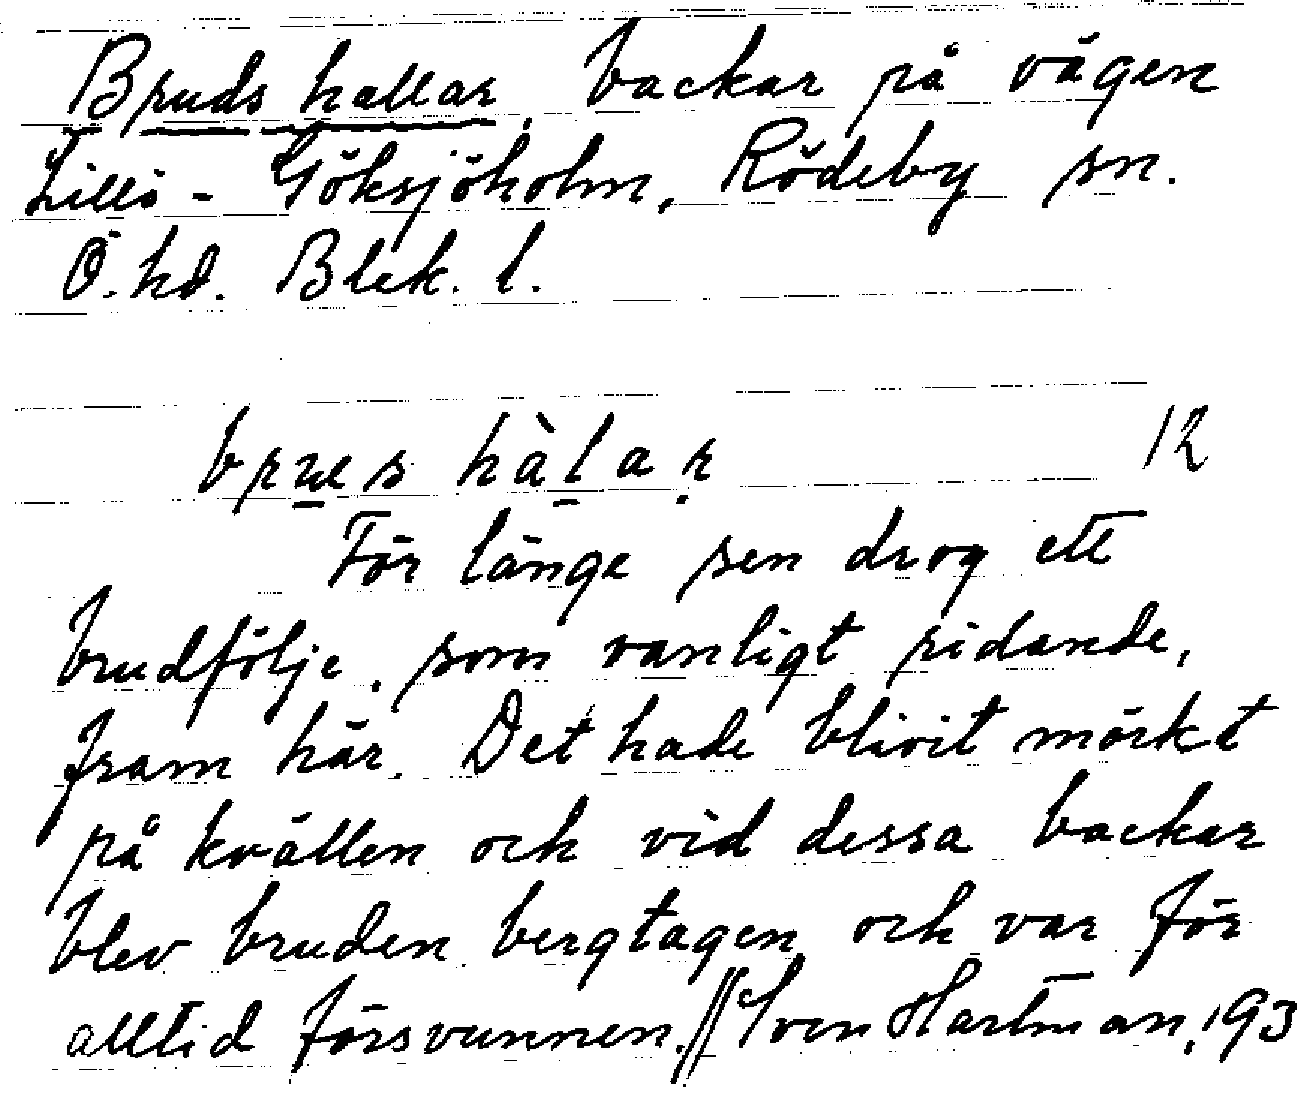 Bruds hallar, backar på vägen
Lillö - Göksjöholm, Rödeby sn.
Ö. hd. Blek. l.
12
För länge sen drog ett
brudfölje, som vanligt ridande,
fram här. Det hade blivit mörkt
på kvällen och vid dessa backar
blev bruden bergtagen och var för
alltid försvunnen. // Sven Hartman, 193